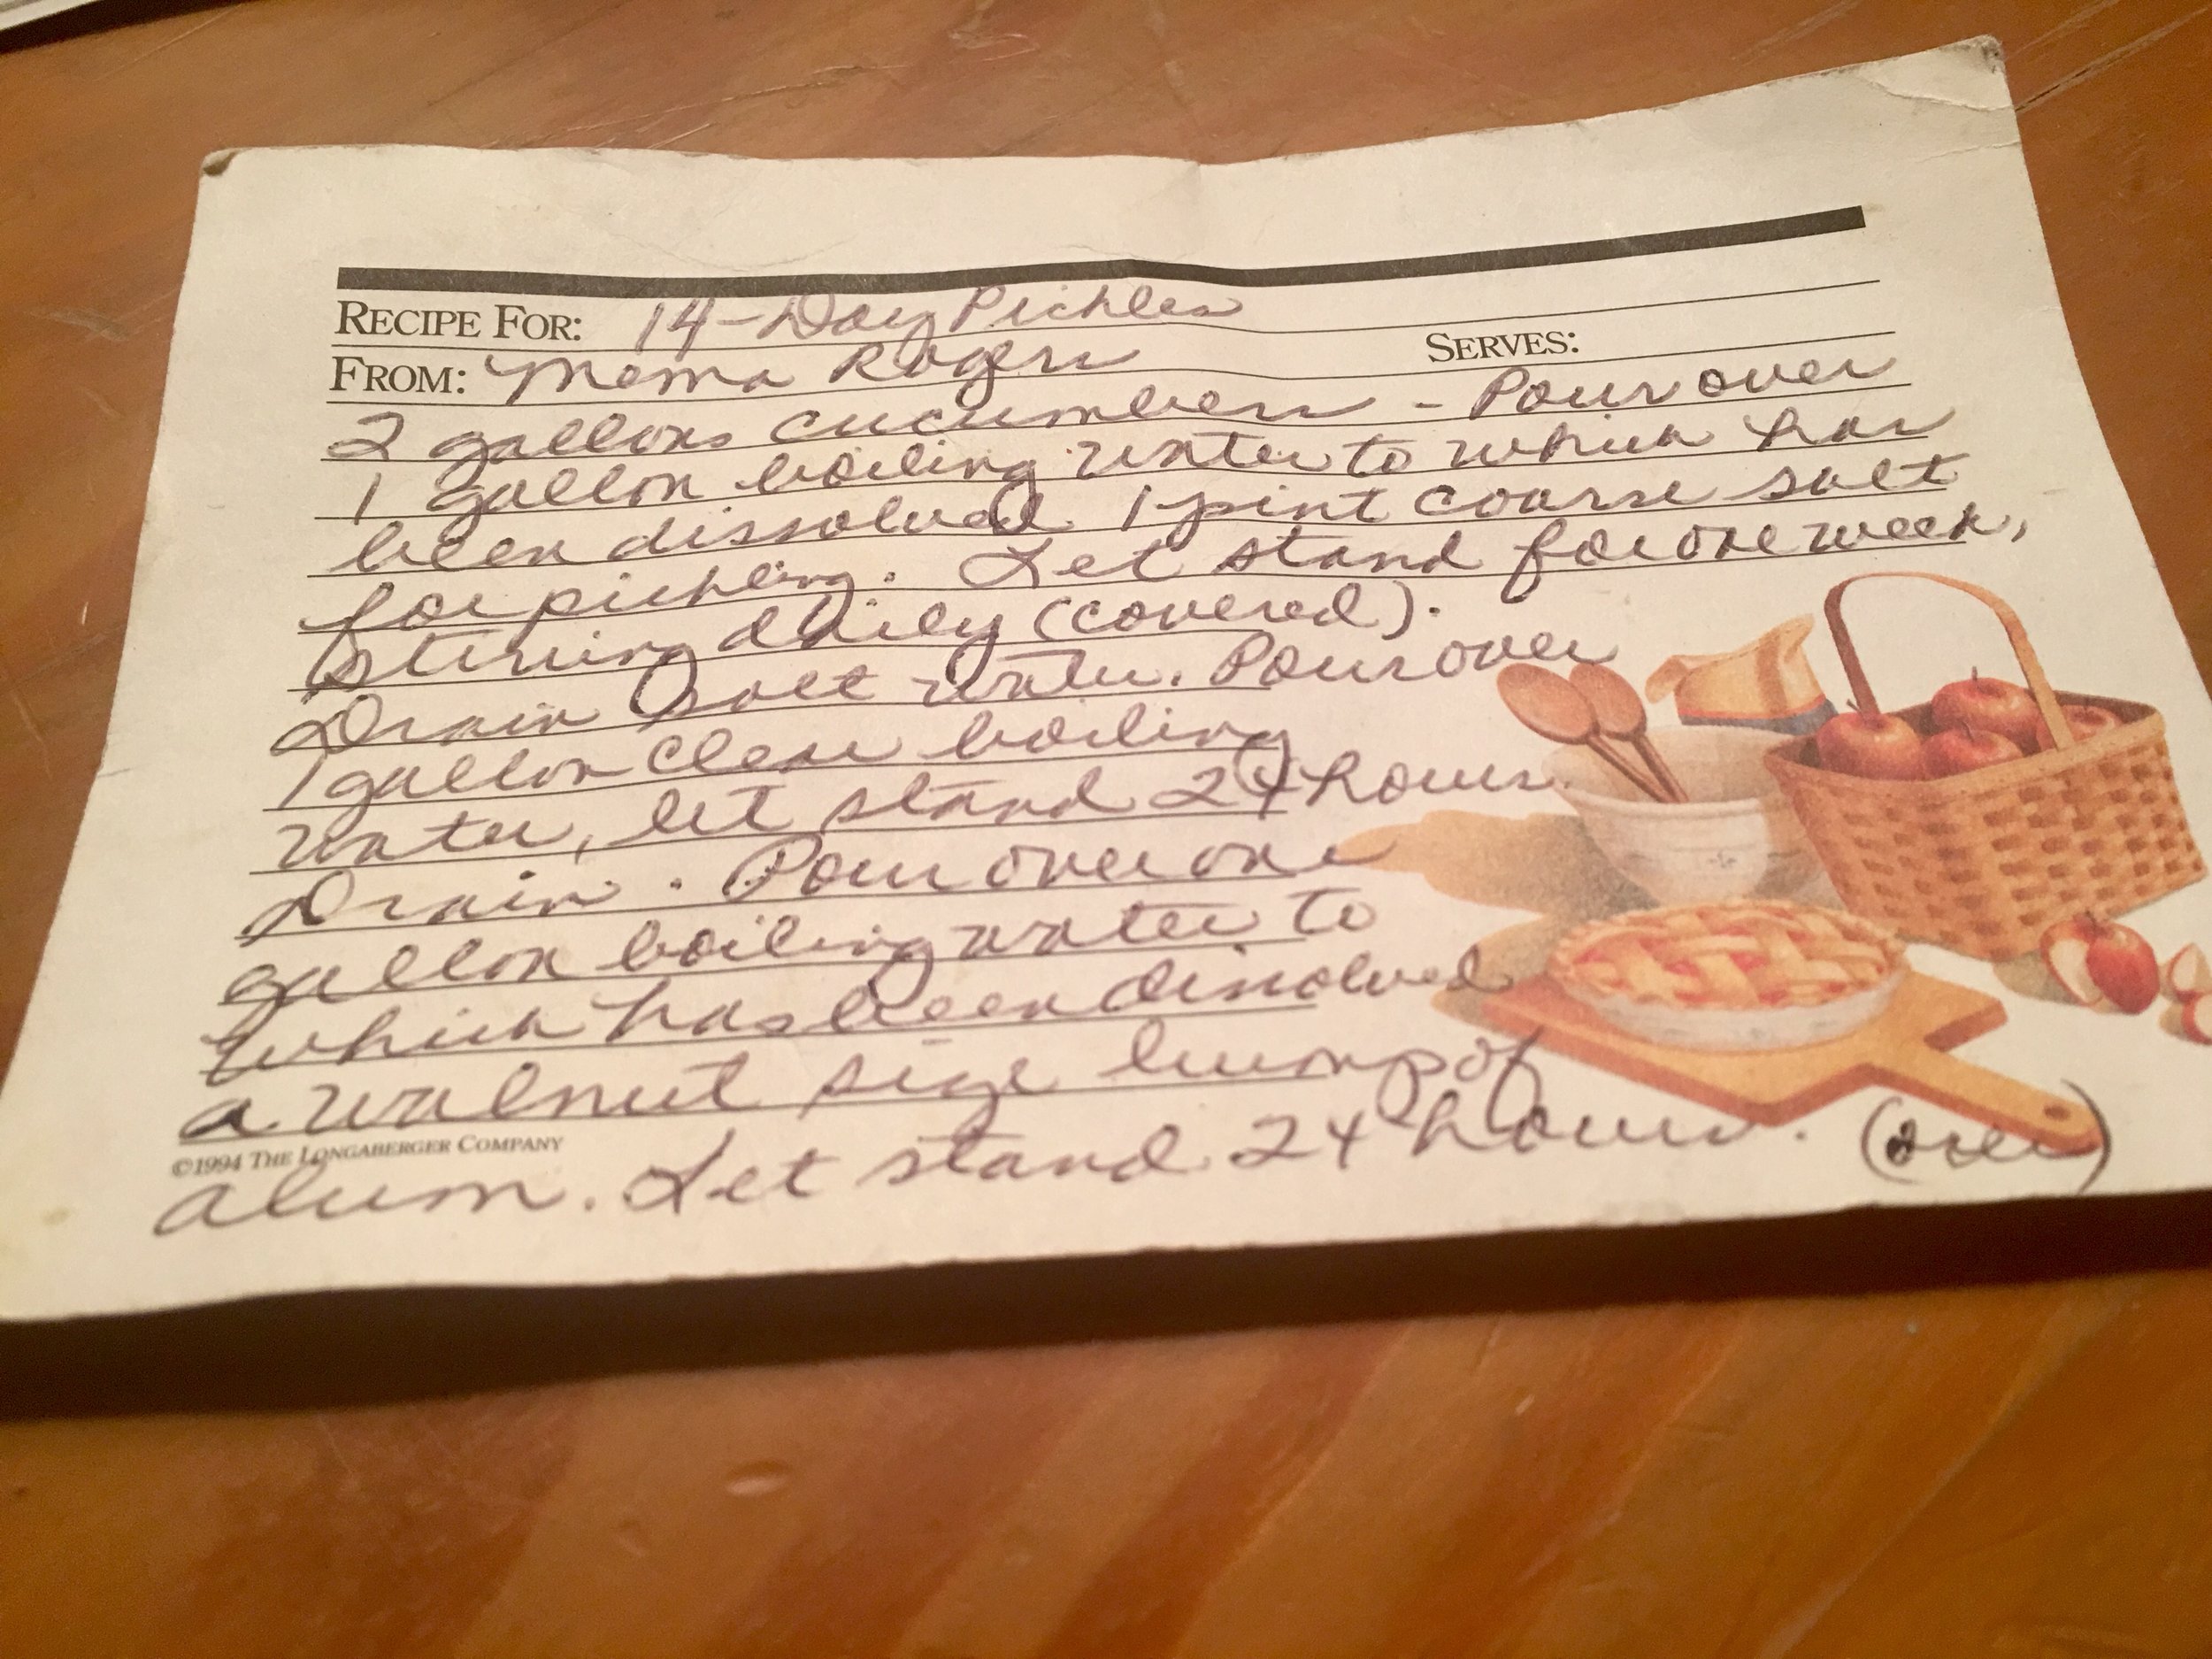 RECIPE FOR: 14-Day Pickles
FROM: Mema Rogers SERVES:
2 gallons cucumbers - Pour over
1 gallon boiling water to which has
been dissolved 1 pint coarse salt
for pickling. Let stand for one week,
stirring daily (covered).
Drain salt water. Pour over
1 gallon clear boiling
water, let stand 24 hours.
Drain. Pour over one
gallon boiling water to
which has been disolved
a walnut size lump of
©1994 THE LONGABERGER COMPANY
alum. Let stand 24 hours. (over)